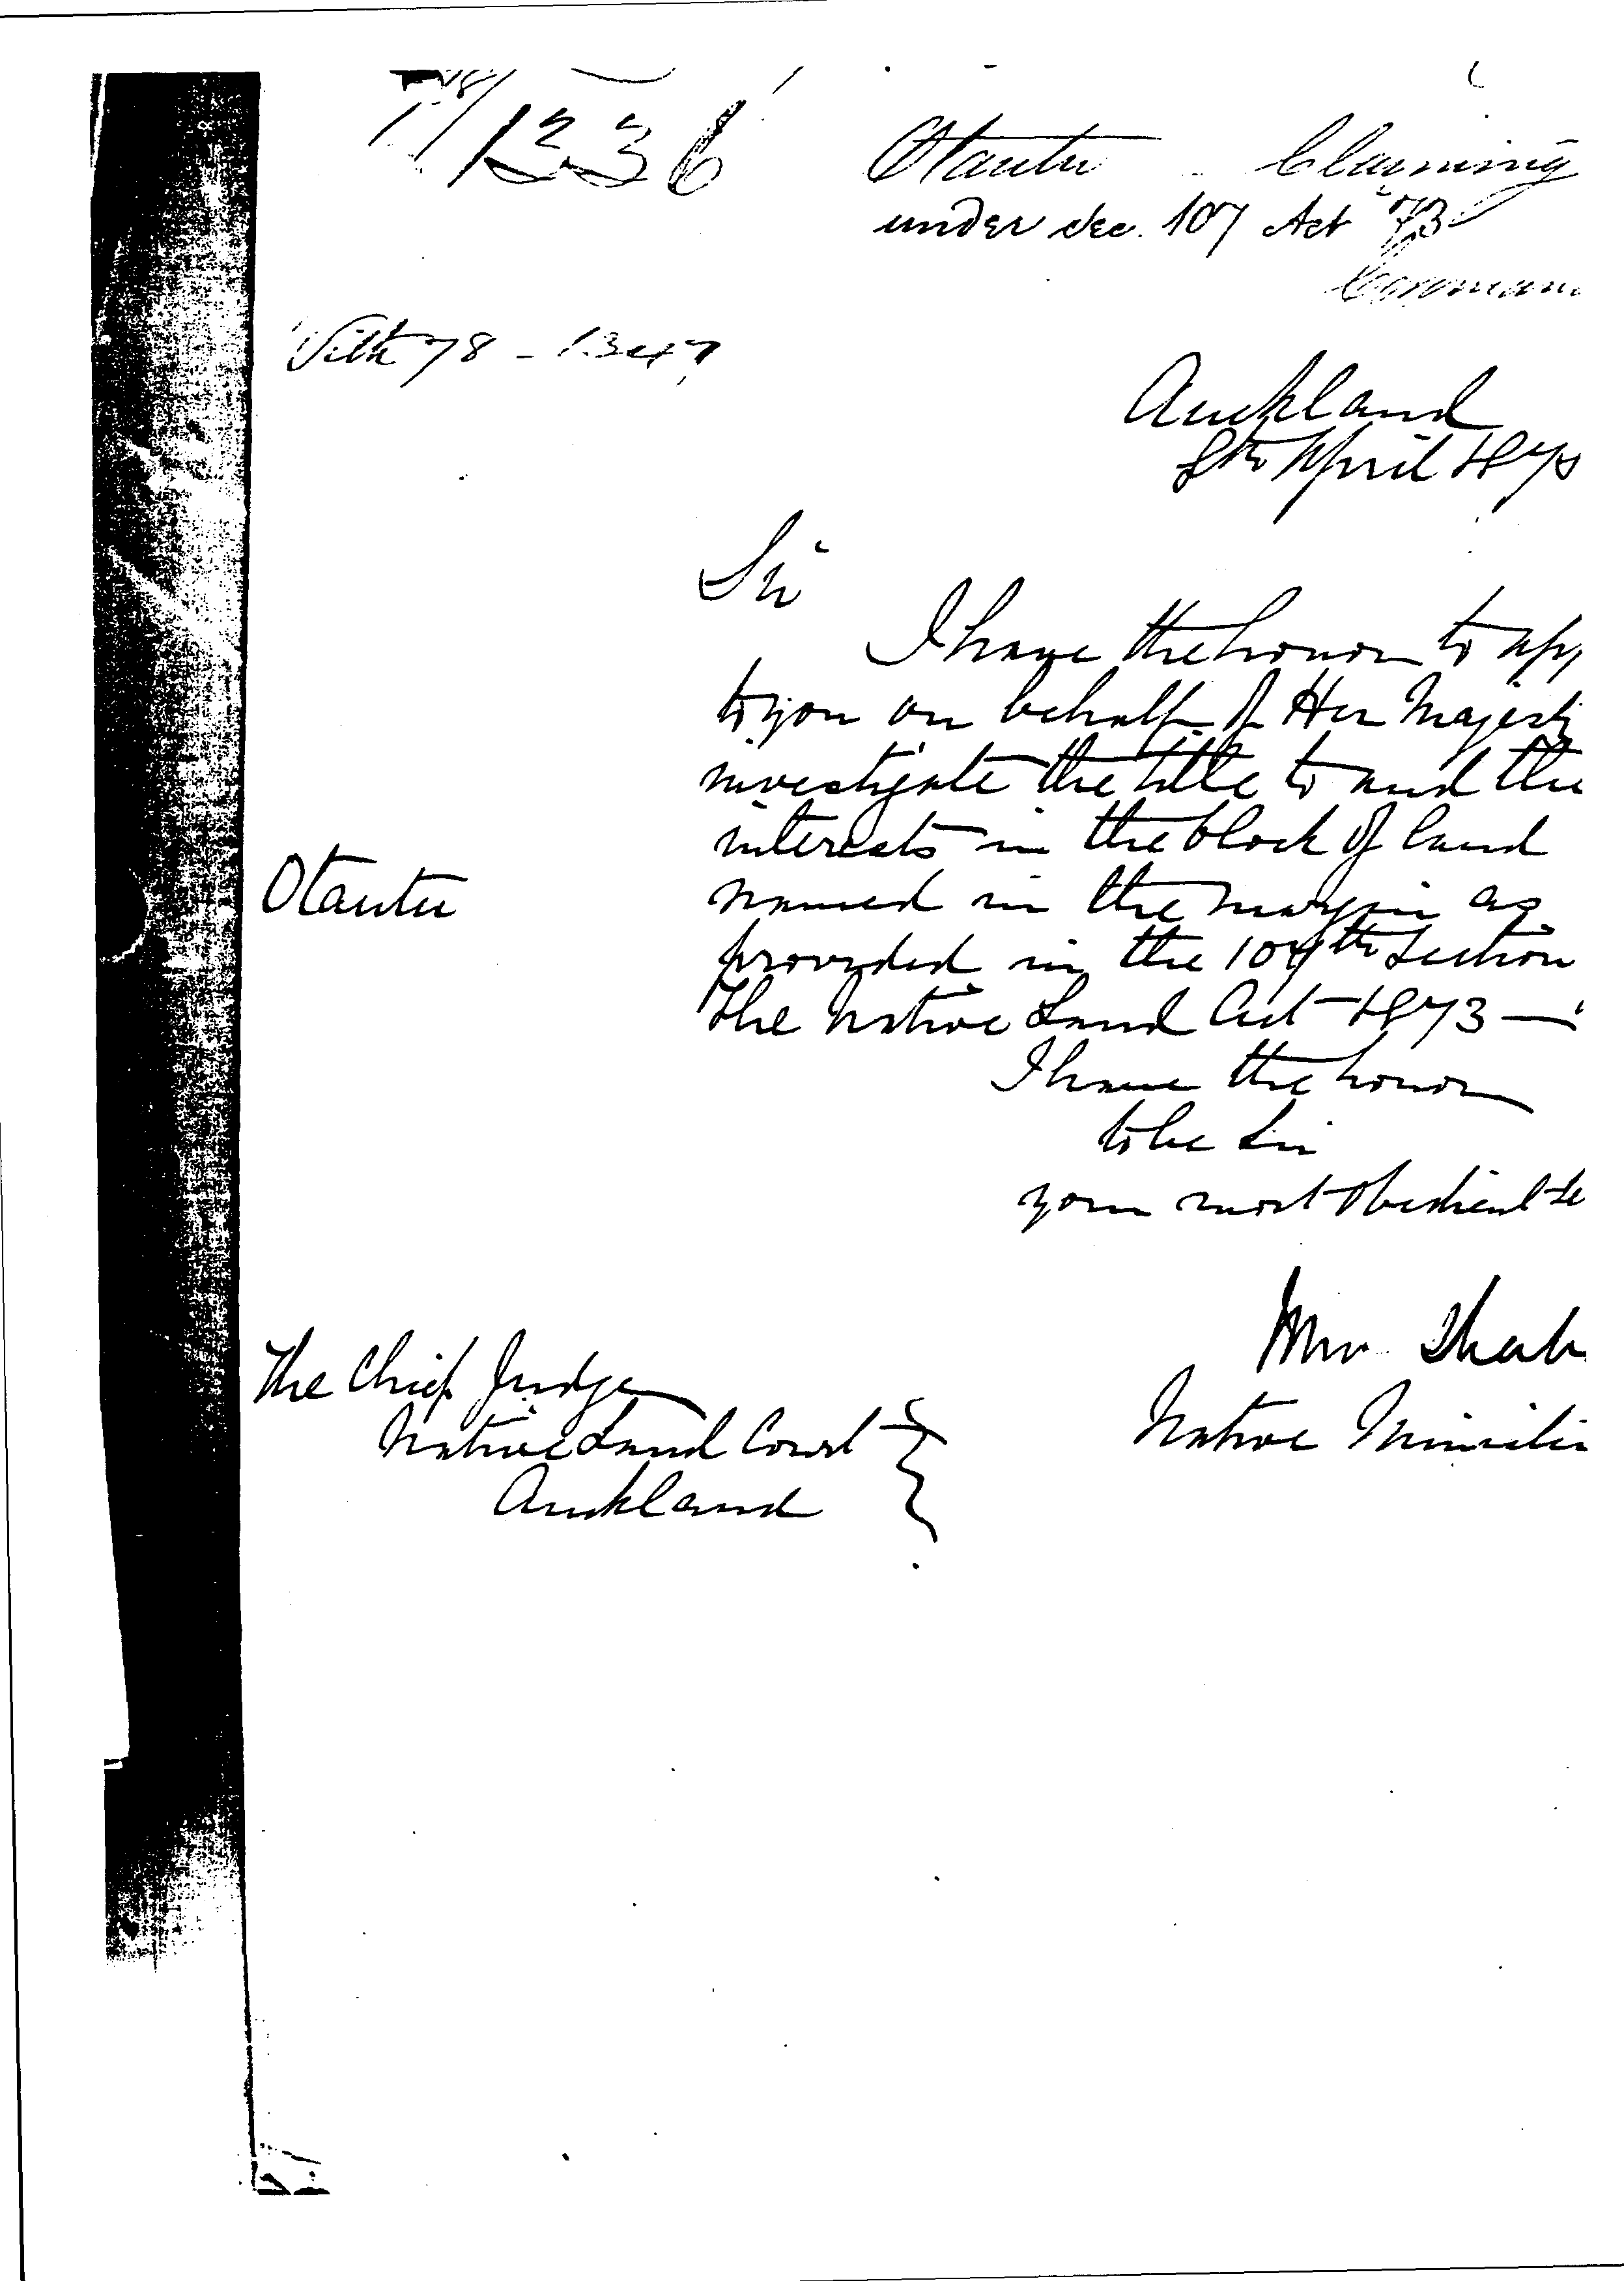 1336
Otautu Claiming
under Sec. 107 Act 73
With 78 - 1347
Auckland
8th April 187
Sir
I have the honor to app
to you on behalf of Her Majesty
investigate the title to and the
interests in the block of land
Otautu
named in the margin as
provided in the 107th Section
The Native Land Act 1873 —
I have the honor
to be Sir
your most obedient se
The Chief Judge
Native Land Court
Auckland
Native Minister